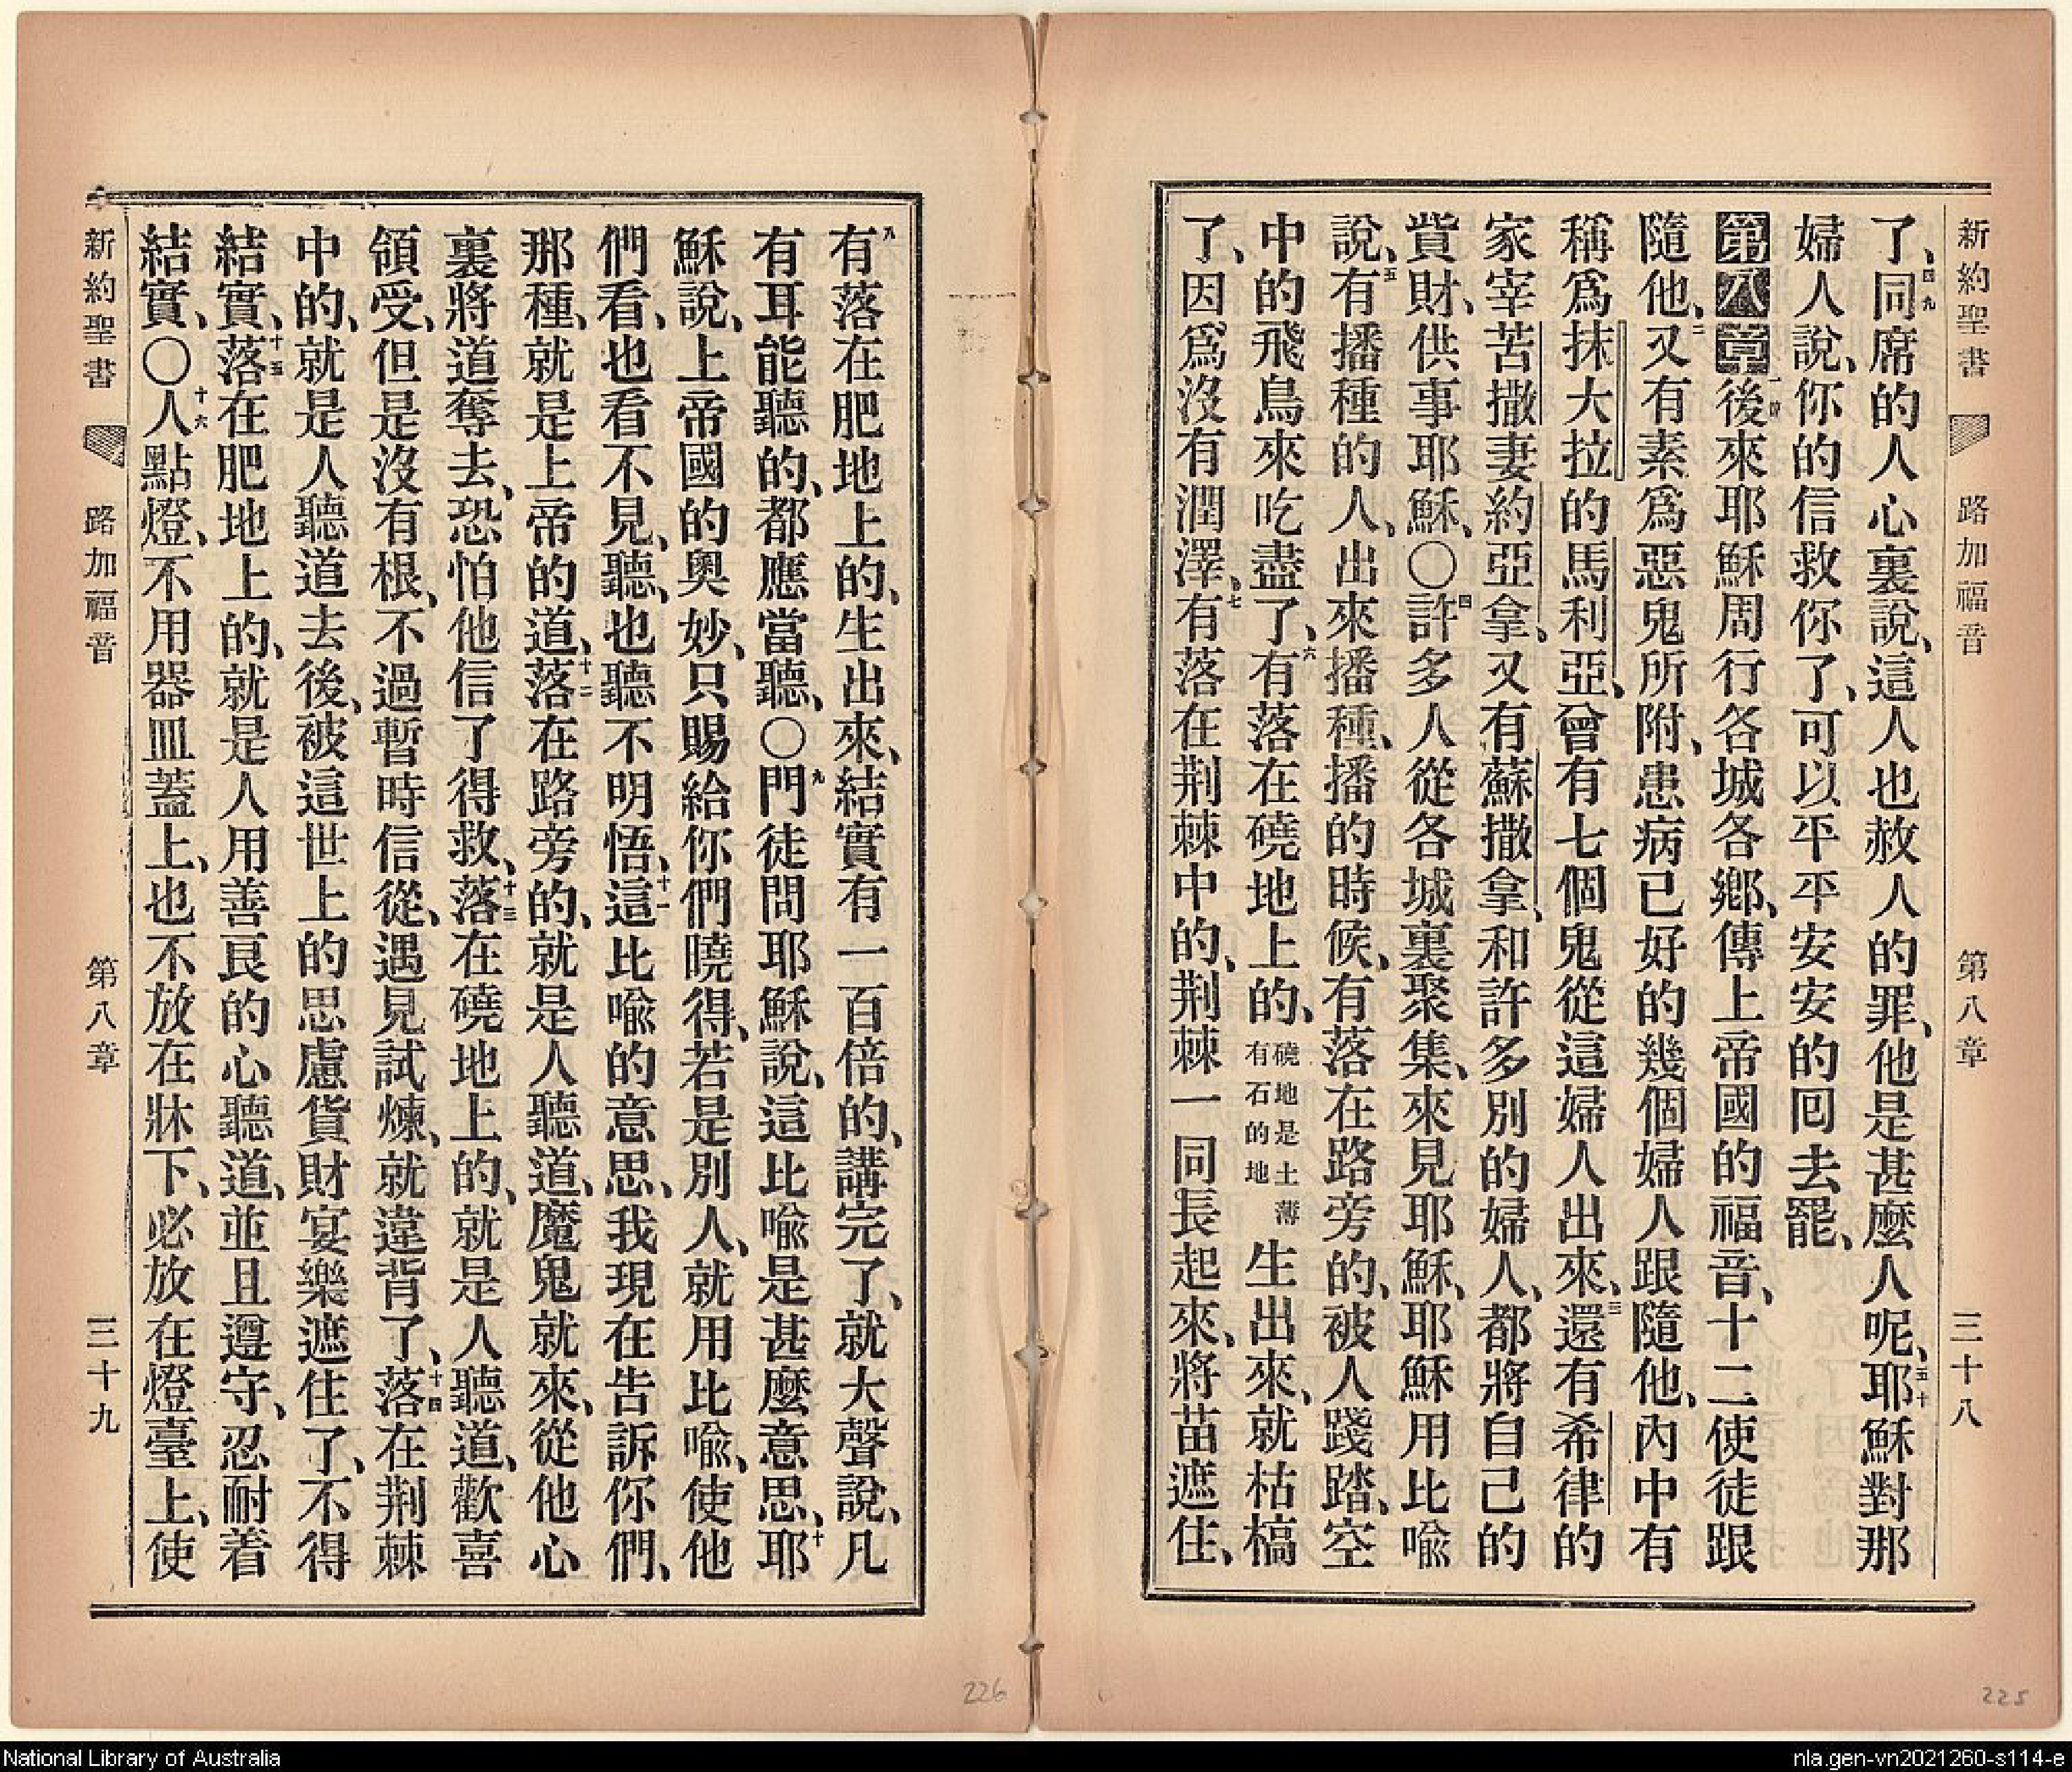 新約聖書 路加福音 第八章 三十八
了、四九同席的人心裏說、這人也赦人的罪、他是甚麼人呢、五十耶穌對那
婦人說、你的信救你了、可以平平安安的回去罷、
第八章一節後來耶穌周行各城各鄉、傳上帝國的福音、十二使徒跟
隨他、二又有素爲惡鬼所附、患病已好的幾個婦人跟隨他、內中有
稱爲抹大拉的馬利亞、曾有七個鬼從這婦人出來、三還有希律的
家宰苦撒妻約亞拿、又有蘇撒拿、和許多別的婦人、都將自己的
貲財、供事耶穌、〇四許多人從各城裏聚集、來見耶穌、耶穌用比喩
說、五有播種的人、出來播種、播的時候、有落在路旁的、被人踐踏、空
中的飛鳥來吃盡了、六有落在磽地上的、磽地是土薄有石的地生出來、就枯槁
了、因爲沒有潤澤、七有落在荆棘中的、荆棘一同長起來、將苗遮住、
225
八有落在肥地上的、生出來、結實有一百倍的、講完了、就大聲說、凡
有耳能聽的、都應當聽、〇九門徒問耶穌說、這比喩是甚麼意思、十耶
穌說、上帝國的奧妙、只賜給你們曉得、若是別人、就用比喩、使他
們看、也看不見、聽、也聽不明悟、十一這比喩的意思、我現在告訴你們、
那種、就是上帝的道、十二落在路旁的、就是人聽道、魔鬼就來、從他心
裏將道奪去、恐怕他信了得救、十三落在磽地上的、就是人聽道、歡喜
領受、但是沒有根、不過暫時信從、遇見試煉、就違背了、十四落在荆棘
中的、就是人聽道去後、被這世上的思慮貨財宴樂遮住了、不得
結實、十五落在肥地上的、就是人用善良的心聽道、並且遵守、忍耐着
結實、〇十六人點燈、不用器皿蓋上、也不放在牀下、必放在燈臺上、使
新約聖書 路加福音 第八章 三十九
226
National Library of Australia
nla.gen-vn2021260-s114-e